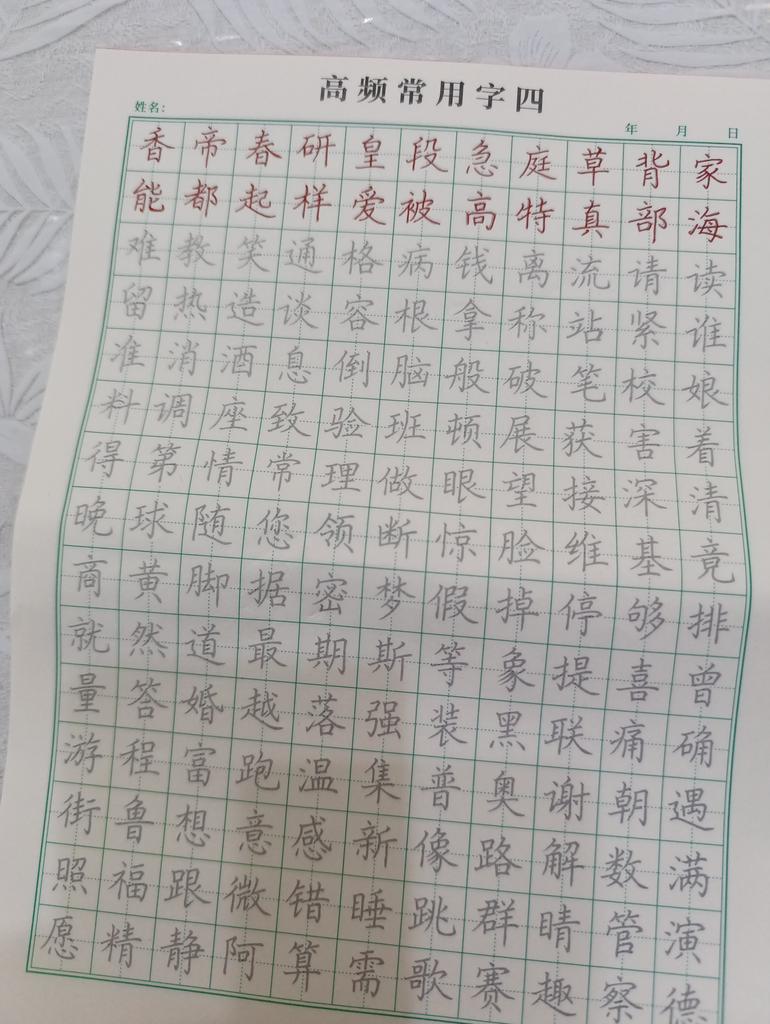 高频常用字四
姓名： 年 月 日
香帝春研皇段急庭草背家
能都起样爱被高特真部海
难教笑通格病钱离流请读
留热造谈容根拿称站紧谁
准消酒息倒脑般破笔校娘
料调座致验班顿展获害着
得第情常理做眼望接深清
晚球随您领断惊脸维基竟
商黄脚据密梦假掉停够排
就然道最期斯等象提喜曾
量答婚越落强装黑联痛确
游程富跑温集普奥谢朝遇
街鲁想意感新像路解数满
照福跟微错睡跳群睛管演
愿精静阿算需歌赛趣察德